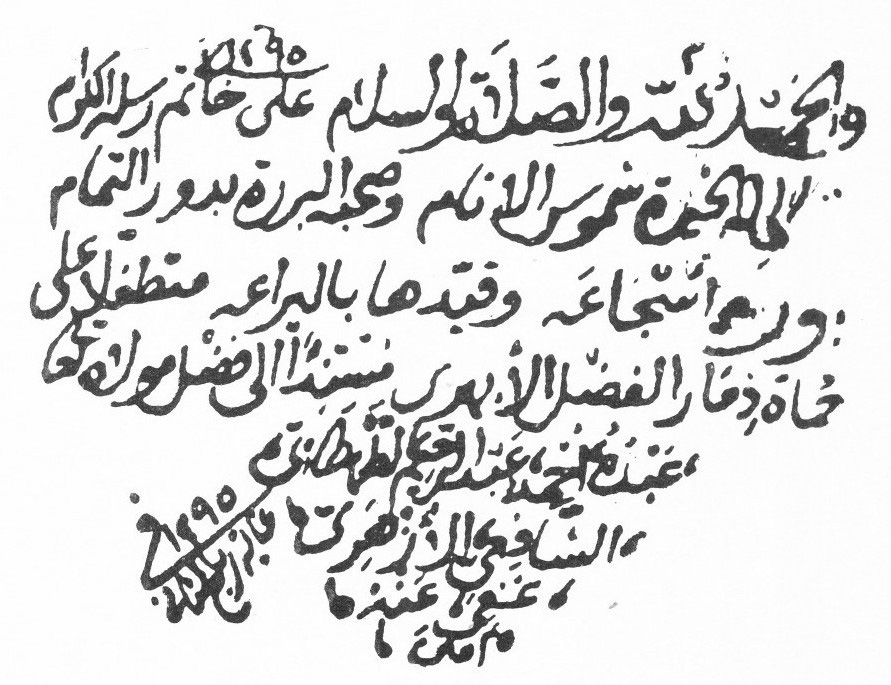 ١٢٩٥
والحمد لله والصلاة والسلام على خاتم رسله الكرام
الخيرة شموس الانام وصحبه البررة بدور التمام
وقيدها باليراعه متطفلا على
حماة ذمار الفضل مستندا الى فضل مولاه
عبده احمد عبد الرحيم الطهطاوى
الشافعى الأزهرى
١٢٩٥
عفى عنه